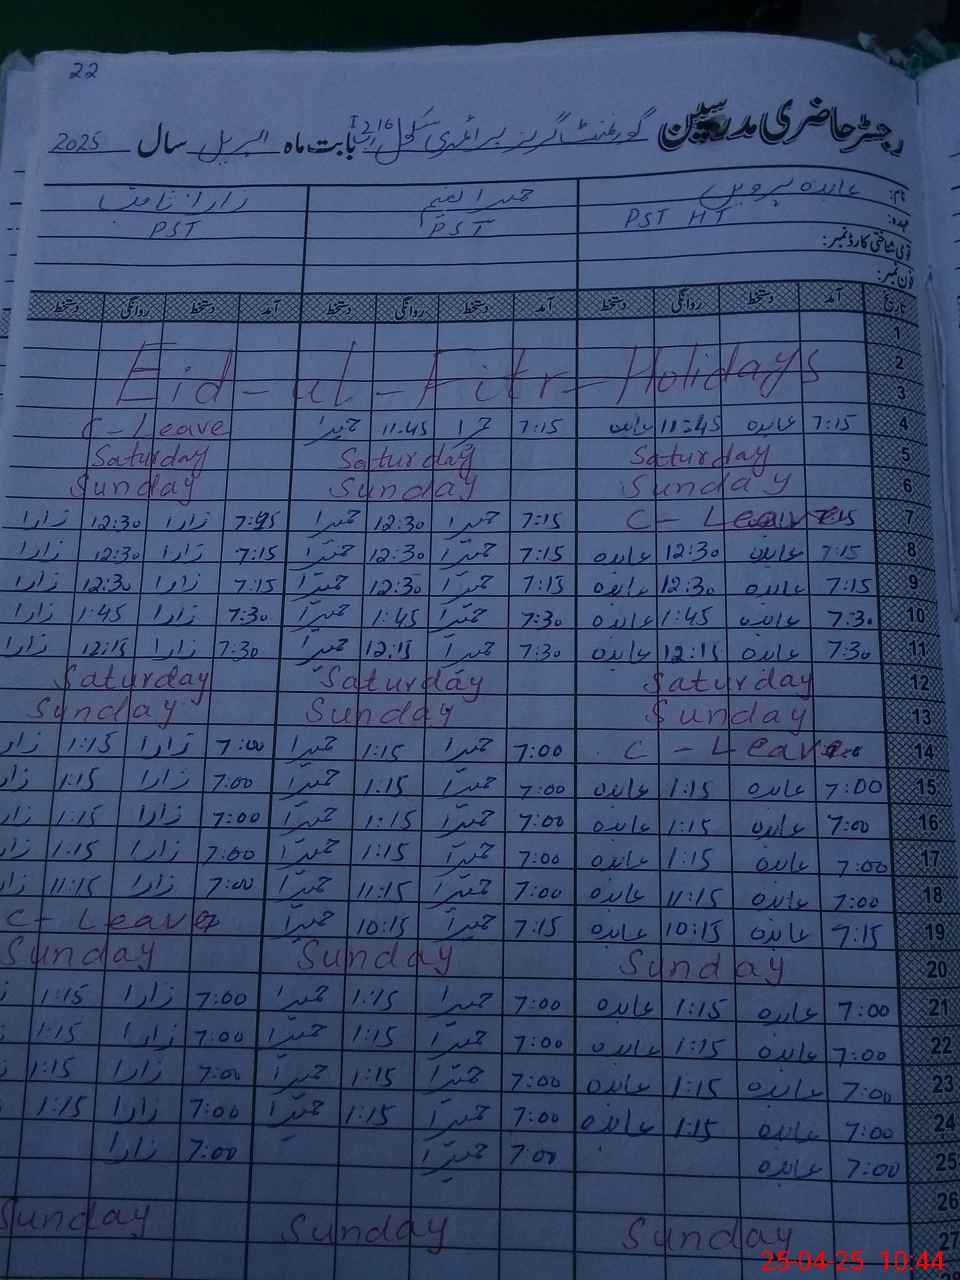 22
رجسٹر حاضری مدرسین گورنمنٹ گرلز پرائمری سکول بابت ماہ اپریل سال 2025
نام: عابدہ پروین حمیرا نعیم زارا ثاقب
عہدہ: PST HT PST PST
قومی شناختی کارڈ نمبر:
فون نمبر:
تاریخ آمد دستخط روانگی دستخط آمد دستخط روانگی دستخط آمد دستخط روانگی دستخط
1
2 Eid-ul-Fitr-Holidays
3
4 7:15 عابدہ 11:45 عابدہ 7:15 حمیرا 11:45 حمیرا C-Leave
5 Saturday Saturday Saturday
6 Sunday Sunday Sunday
7 C-Leave 7:15 حمیرا 12:30 حمیرا 7:15 زارا 12:30 زارا
8 7:15 عابدہ 12:30 عابدہ 7:15 حمیرا 12:30 حمیرا 7:15 زارا 12:30 زارا
9 7:15 عابدہ 12:30 عابدہ 7:15 حمیرا 12:30 حمیرا 7:15 زارا 12:30 زارا
10 7:30 عابدہ 1:45 عابدہ 7:30 حمیرا 1:45 حمیرا 7:30 زارا 1:45 زارا
11 7:30 عابدہ 12:15 عابدہ 7:30 حمیرا 12:15 حمیرا 7:30 زارا 12:15 زارا
12 Saturday Saturday Saturday
13 Sunday Sunday Sunday
14 C-Leave 7:00 حمیرا 1:15 حمیرا 7:00 زارا 1:15 زارا
15 7:00 عابدہ 1:15 عابدہ 7:00 حمیرا 1:15 حمیرا 7:00 زارا 1:15 زارا
16 7:00 عابدہ 1:15 عابدہ 7:00 حمیرا 1:15 حمیرا 7:00 زارا 1:15 زارا
17 7:00 عابدہ 1:15 عابدہ 7:00 حمیرا 1:15 حمیرا 7:00 زارا 1:15 زارا
18 7:00 عابدہ 11:15 عابدہ 7:00 حمیرا 11:15 حمیرا 7:00 زارا 11:15 زارا
19 7:15 عابدہ 10:15 عابدہ 7:15 حمیرا 10:15 حمیرا C-Leave
20 Sunday Sunday Sunday
21 7:00 عابدہ 1:15 عابدہ 7:00 حمیرا 1:15 حمیرا 7:00 زارا 1:15
22 7:00 عابدہ 1:15 عابدہ 7:00 حمیرا 1:15 حمیرا 7:00 زارا 1:15
23 7:00 عابدہ 1:15 عابدہ 7:00 حمیرا 1:15 حمیرا 7:00 زارا 1:15
24 7:00 عابدہ 1:15 عابدہ 7:00 حمیرا 1:15 حمیرا 7:00 زارا 1:15
25 7:00 عابدہ 7:00 حمیرا 7:00 زارا
26
27 Sunday Sunday Sunday
25-04-25 10:44